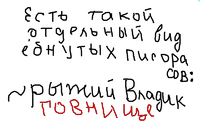 Есть такой
отдельный вид
ебнутых писора
сов:
~рыжий Владик
говнище